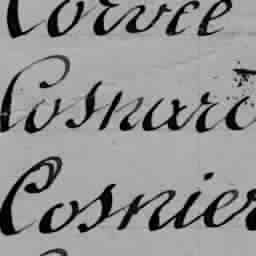 Corvée
Cosnard
Cosnier